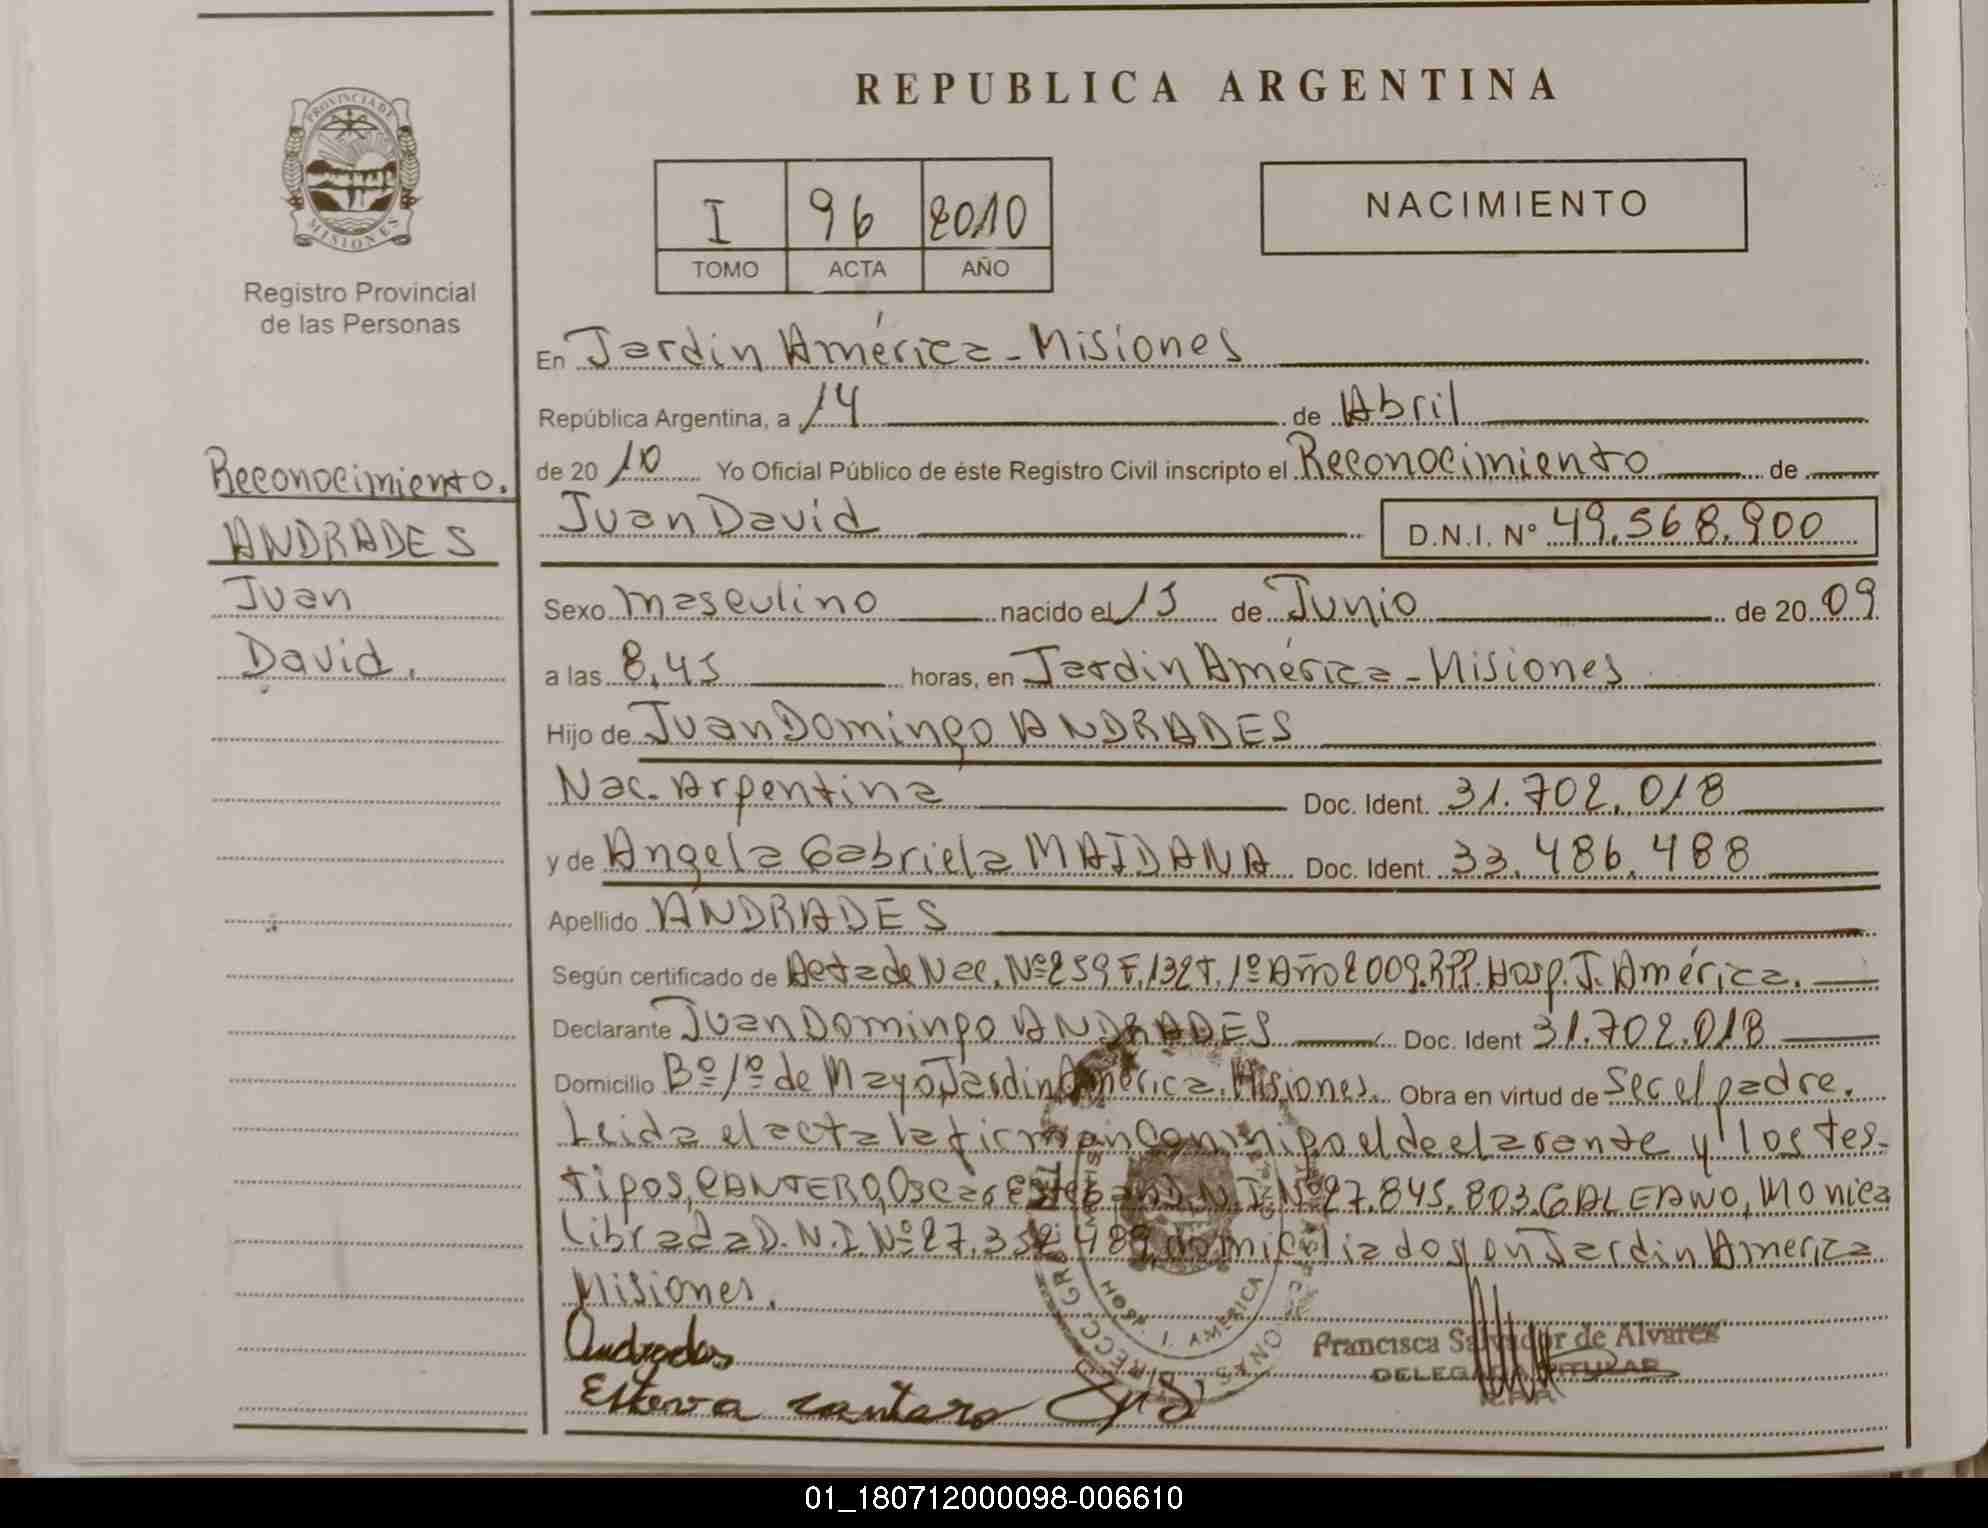 REPUBLICA ARGENTINA
PROVINCIA DE
MISIONES
Registro Provincial
de las Personas
I 96 2010
TOMO ACTA AÑO
NACIMIENTO
En Jardin América - Misiones
República Argentina, a 14 de Abril
de 20 10 Yo Oficial Público de éste Registro Civil inscripto el Reconocimiento de
Juan David D.N.I. N° 49.568.900
Reconocimiento.
ANDRADES
Juan
David.
Sexo masculino nacido el 15 de Junio de 20 09
a las 8,45 horas, en Jardin América - Misiones
Hijo de Juan Domingo ANDRADES
Nac. Argentina Doc. Ident. 31.702.018
y de Angela Gabriela MAIDANA Doc. Ident. 33.486.488
Apellido ANDRADES
Según certificado de Acta de Nac. Nº 259 F. 132 T. 1º Año 2009. RPP. Hosp. J. América.
Declarante Juan Domingo ANDRADES Doc. Ident 31.702.018
Domicilio Bº 1º de Mayo Jardin América. Misiones. Obra en virtud de ser el padre.
Leida el acta la firman conmigo el declarante y los tes-
tigos, CANTERO, Oscar Esteban D.N.I. Nº 27.845.803. GALEANO, Monica
Librada D.N.I Nº 27.352.489, domiciliados en Jardin America
Misiones.
Andrades
Esteva cantero
Francisca Salvador de Alvarez
DELEGADA TITULAR
HOSP. J. AMERICA
01_180712000098-006610